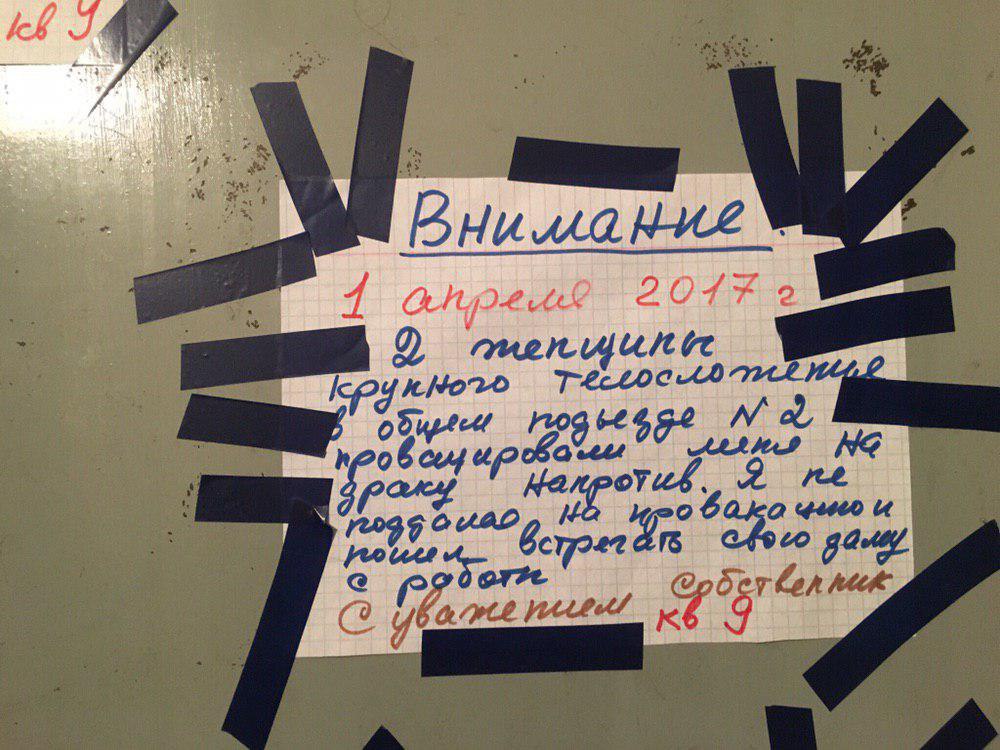 кв 9
Внимание
1 апреля 2017 г
2 женщины
крупного телосложения
в общем подьезде N 2
провацировали меня на
драку напротив. Я не
поддался на провакацию и
пошел встречать свою даму
с работы
С уважением собственник
кв 9